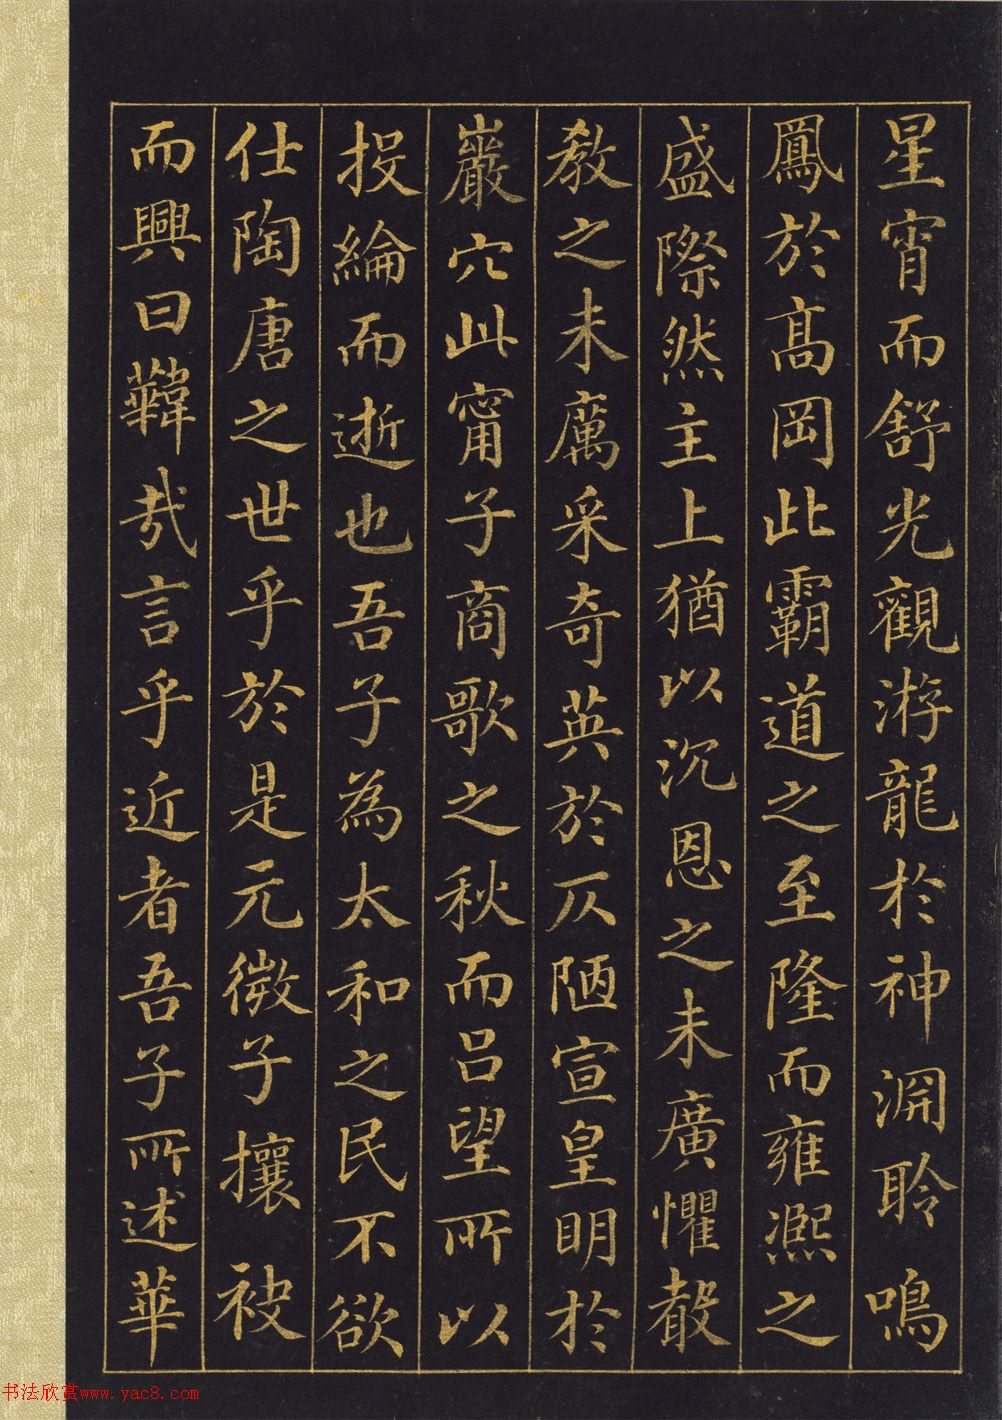 星宵而舒光觀游龍於神淵聆鳴
鳳於高岡此霸道之至隆而雍熙之
盛際然主上猶以沉恩之未廣懼聲
教之未厲采奇英於仄陋宣皇明於
巖穴此甯子商歌之秋而呂望所以
投綸而逝也吾子為太和之民不欲
仕陶唐之世乎於是元微子攘袂
而興曰韡哉言乎近者吾子所述華
书法欣赏www.yac8.com